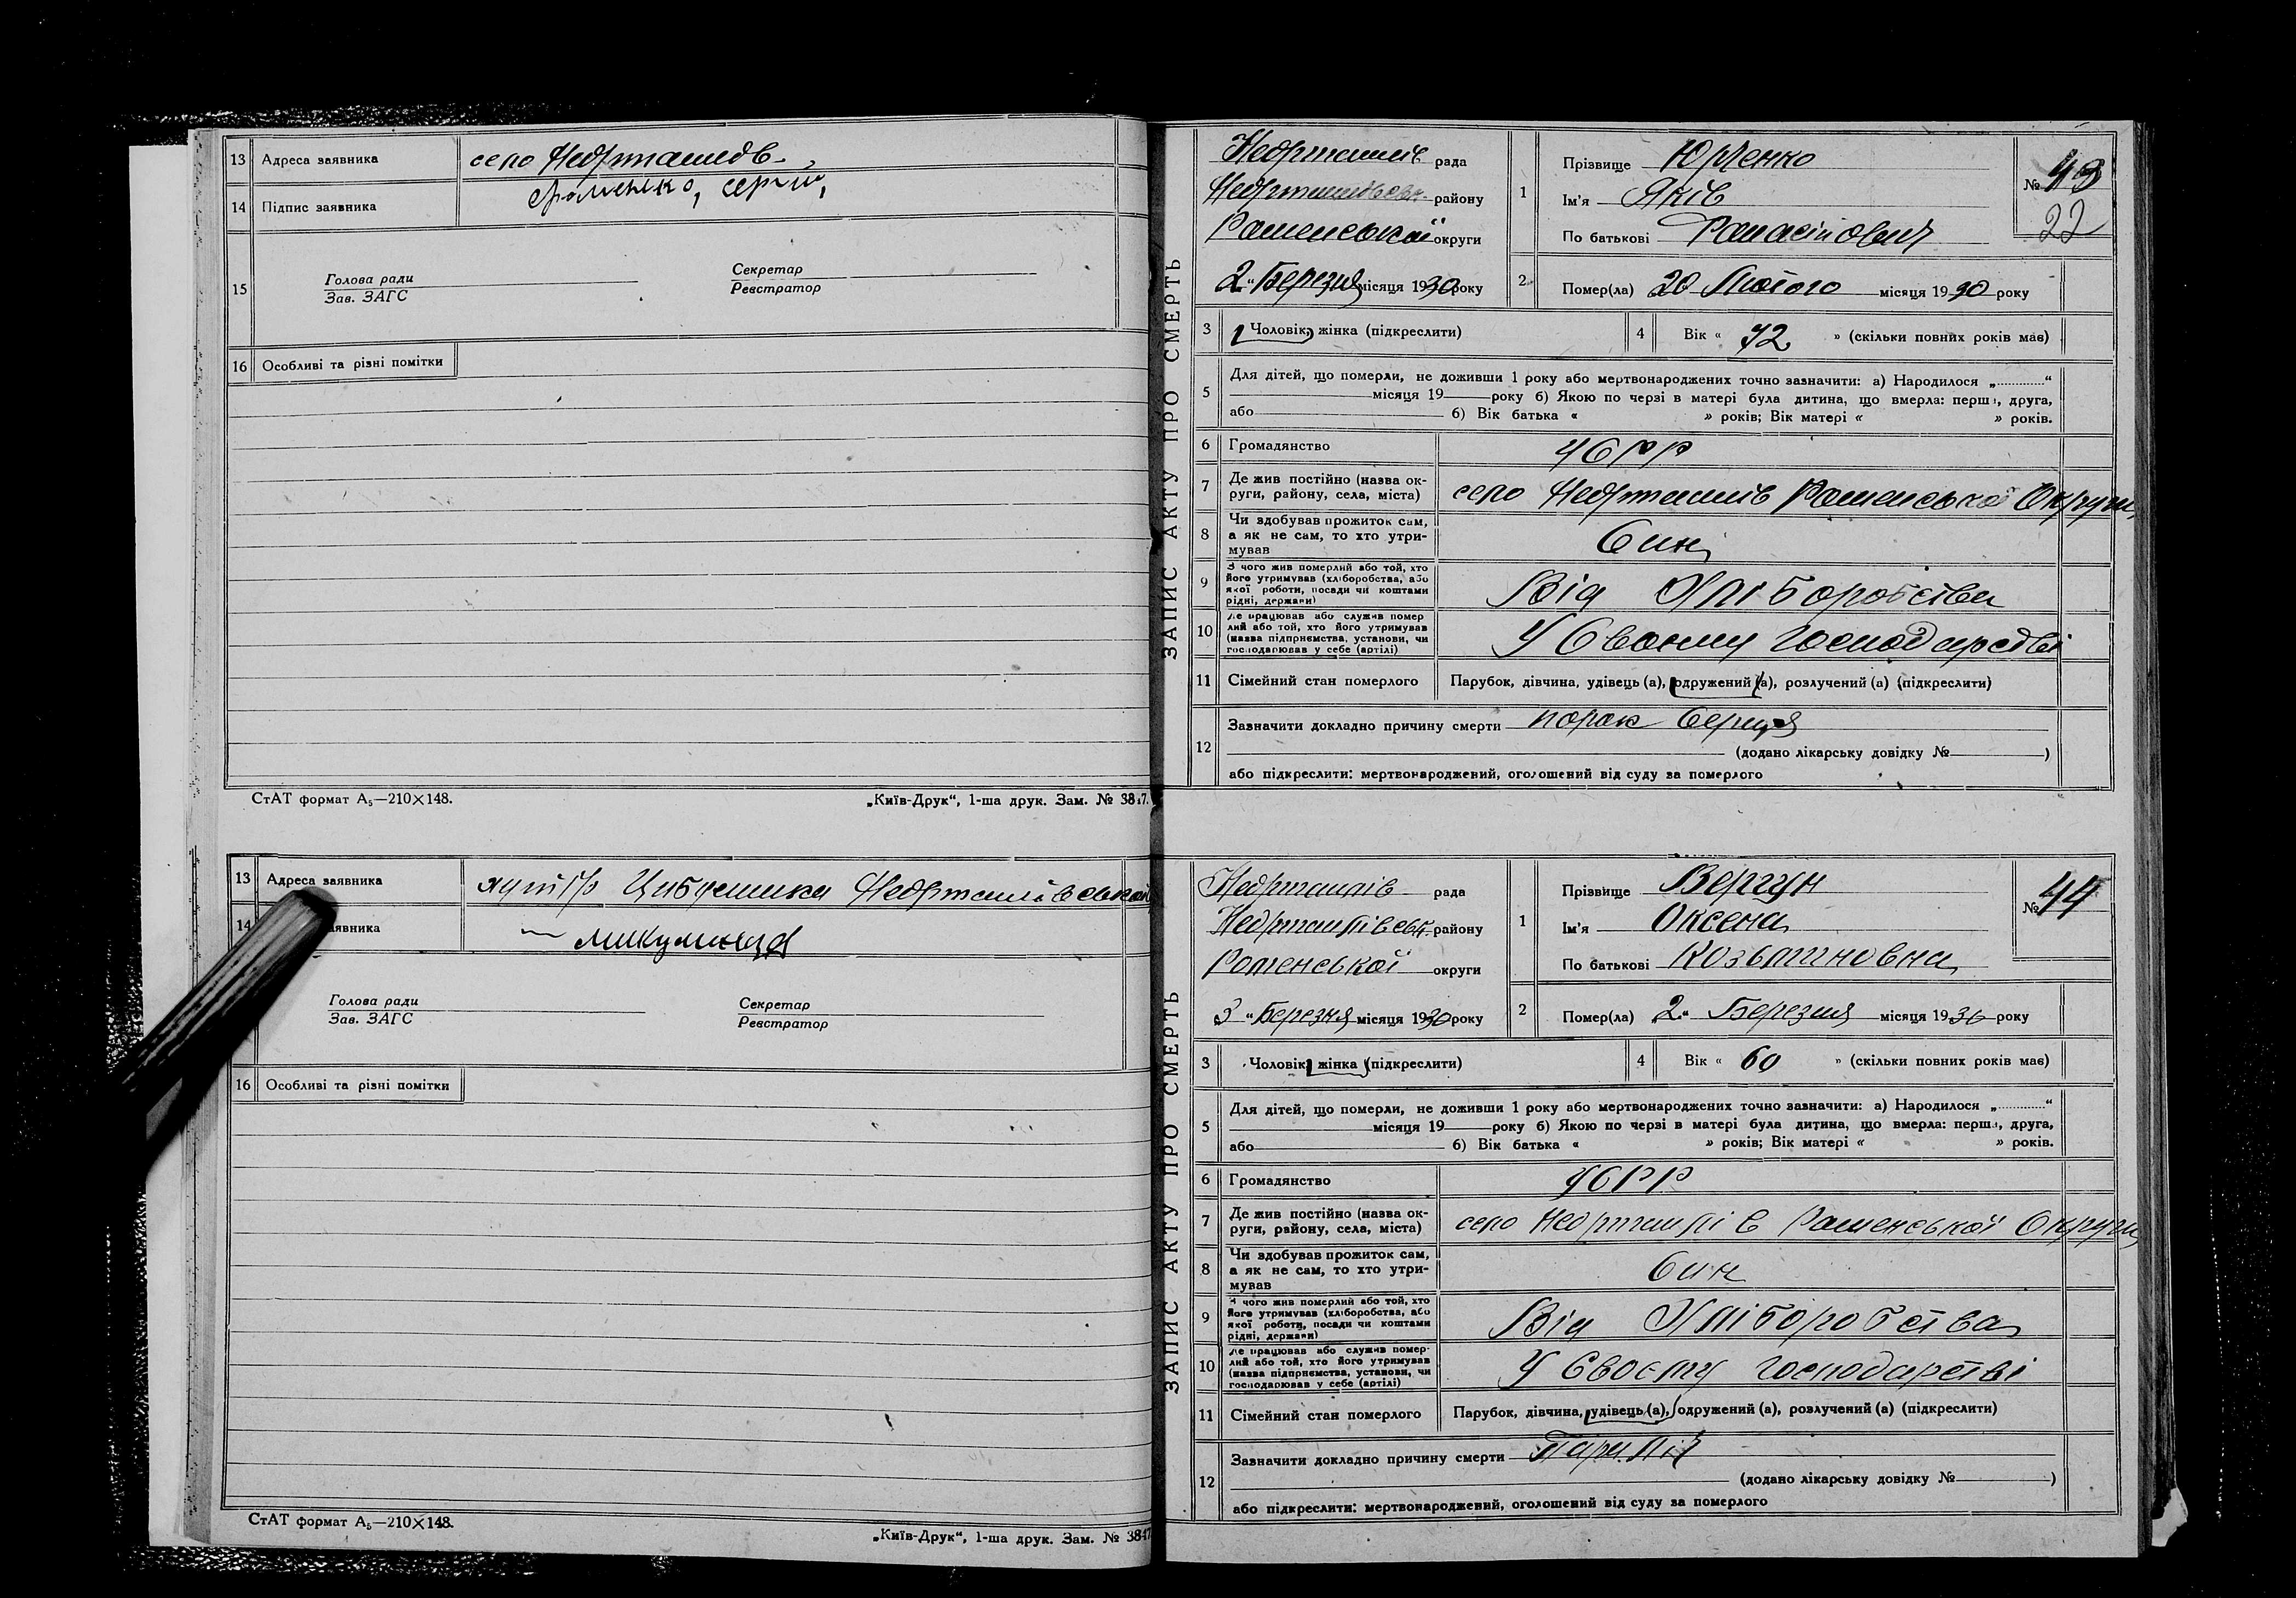 13 Адреса заявника село Недригайлів
14 Підпис заявника сергій
15 Голова ради Секретар
Зав. ЗАГС Реєстратор
16 Особливі та різні помітки
СтАТ формат А₅—210×148. „Київ-Друк“, 1-ша друк. Зам. №
13 Адреса заявника хутір Цибуленки
14 явника
Голова ради Секретар
Зав. ЗАГС Реєстратор
16 Особливі та різні помітки
СтАТ формат А₅—210×148. „Київ-Друк“, 1-ша друк. Зам. №
ЗАПИС АКТУ ПРО СМЕРТЬ
Недригайлів рада
району
Роменської округи
2 „ Березня місяця 1930 року
1 Прізвище Юрченко
Ім'я Яків
По батькові
№ 43
22
2 Помер(ла) 20 Лютого місяця 1930 року
3 Чоловік, жінка (підкреслити) 4 Вік « 72 » (скільки повних років має)
5 Для дітей, що померли, не доживши 1 року або мертвонароджених точно зазначити: а) Народилося „............“
місяця 19 року б) Якою по черзі в матері була дитина, що вмерла: перша, друга,
або 6) Вік батька « » років; Вік матері « » років.
6 Громадянство УСРР
7 Де жив постійно (назва ок-
руги, району, села, міста) село Недригайлів Роменської Округи
8 Чи здобував прожиток сам,
а як не сам, то хто утри-
мував Син
9 З чого жив померлий або той, хто
його утримував (хліборобства, або
якої роботи, посади чи коштами
рідні, держави) Від Хліборобства
10 Де працював або служив помер
лий або той, хто його утримував
(назва підприємства, установи, чи
господарював у себе (артілі) У Своєму господарстві
11 Сімейний стан померлого Парубок, дівчина, удівець (а), одружений (а), розлучений (а) (підкреслити)
12 Зазначити докладно причину смерти порок серця
(додано лікарську довідку № )
або підкреслити: мертвонароджений, оголошений від суду за померлого
ЗАПИС АКТУ ПРО СМЕРТЬ
Недригайлів рада
Недригайлівськ. району
Роменської округи
3 „ Березня місяця 1930 року
1 Прізвище Вергун
Ім'я Оксена
По батькові Козьминовна
№ 44
2 Помер(ла) 2 „ Березня місяця 1930 року
3 Чоловік, жінка (підкреслити) 4 Вік « 60 » (скільки повних років має)
5 Для дітей, що померли, не доживши 1 року або мертвонароджених точно зазначити: а) Народилося „............“
місяця 19 року б) Якою по черзі в матері була дитина, що вмерла: перша, друга,
або 6) Вік батька « » років; Вік матері « » років.
6 Громадянство УСРР
7 Де жив постійно (назва ок-
руги, району, села, міста) село Недригайлів Роменської Округи
8 Чи здобував прожиток сам,
а як не сам, то хто утри-
мував Син
9 З чого жив померлий або той, хто
його утримував (хліборобства, або
якої роботи, посади чи коштами
рідні, держави) Від Хліборобства
10 Де працював або служив помер-
лий або той, хто його утримував
(назва підприємства, установи, чи
господарював у себе (артілі) У Своєму господарстві
11 Сімейний стан померлого Парубок, дівчина, удівець (а), одружений (а), розлучений (а) (підкреслити)
12 Зазначити докладно причину смерти
(додано лікарську довідку № )
або підкреслити: мертвонароджений, оголошений від суду за померлого